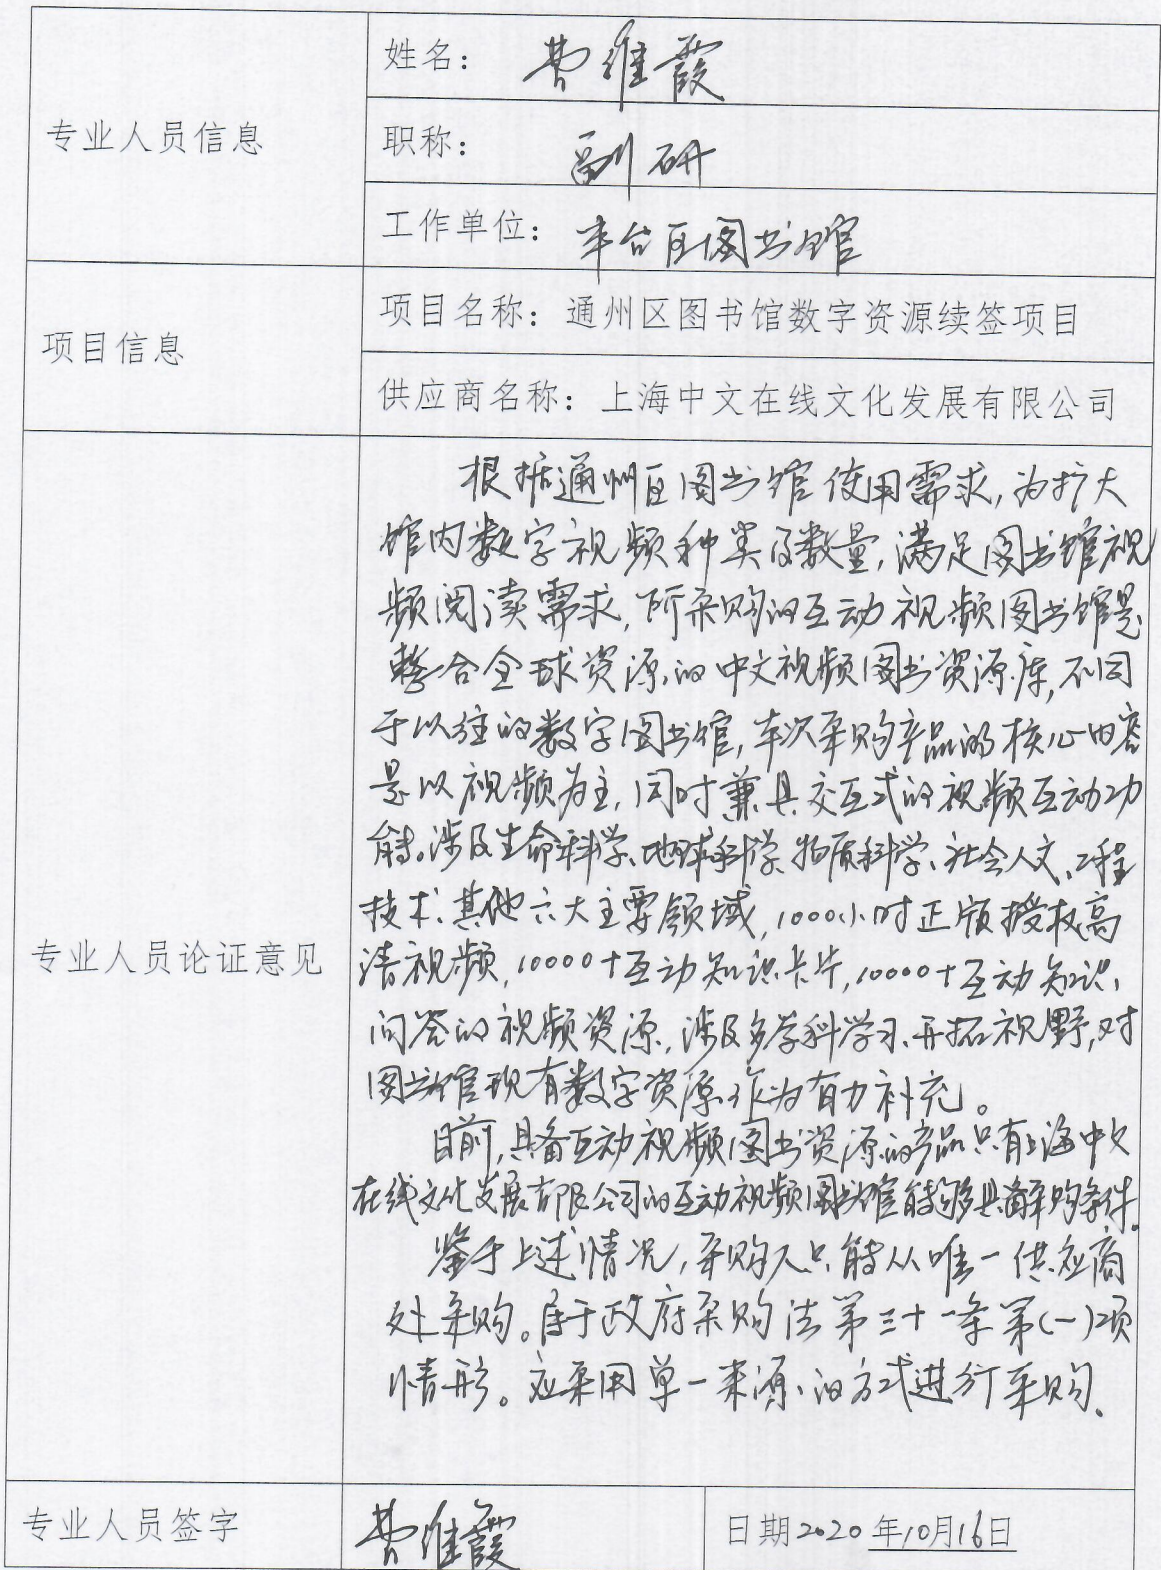 专业人员信息
姓名：曹维霞
职称：副研
工作单位：丰台区图书馆
项目信息
项目名称：通州区图书馆数字资源续签项目
供应商名称：上海中文在线文化发展有限公司
专业人员论证意见
根据通州区图书馆使用需求，为扩大
馆内数字视频种类及数量，满足图书馆视
频阅读需求，所采购的互动视频图书馆是
整合全球资源的中文视频图书资源库，不同
于以往的数字图书馆，本次采购产品的核心内容
是以视频为主，同时兼具交互式的视频互动功
能。涉及生命科学、地球科学、物质科学、社会人文、工程
技术、其他六大主要领域，1000小时正版授权高
清视频，10000+互动知识卡片，10000+互动知识
问答的视频资源，涉及多学科学习、开拓视野，对
图书馆现有数字资源作为有力补充。
目前，具备互动视频图书资源的产品只有上海中文
在线文化发展有限公司的互动视频图书馆能够具备采购条件。
鉴于上述情况，采购人只能从唯一供应商
处采购。属于政府采购法第三十一条第(一)项
情形。应采用单一来源的方式进行采购。
专业人员签字
曹维霞
日期2020年10月16日